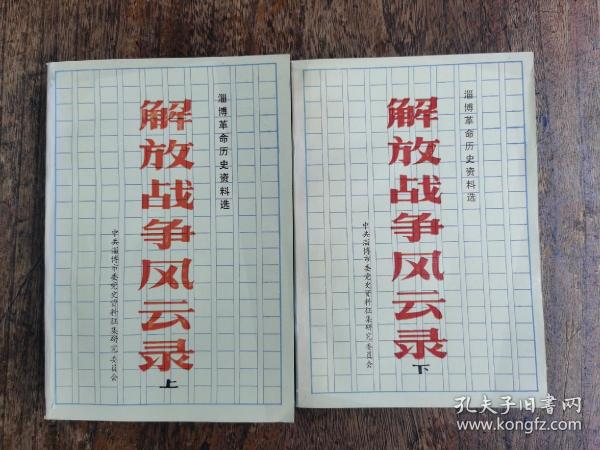 淄博革命历史资料选
解放战争风云录
上
中共淄博市委党史资料征集研究委员会
淄博革命历史资料选
解放战争风云录
下
中共淄博市委党史资料征集研究委员会
孔夫子旧書网
www.kongfz.com